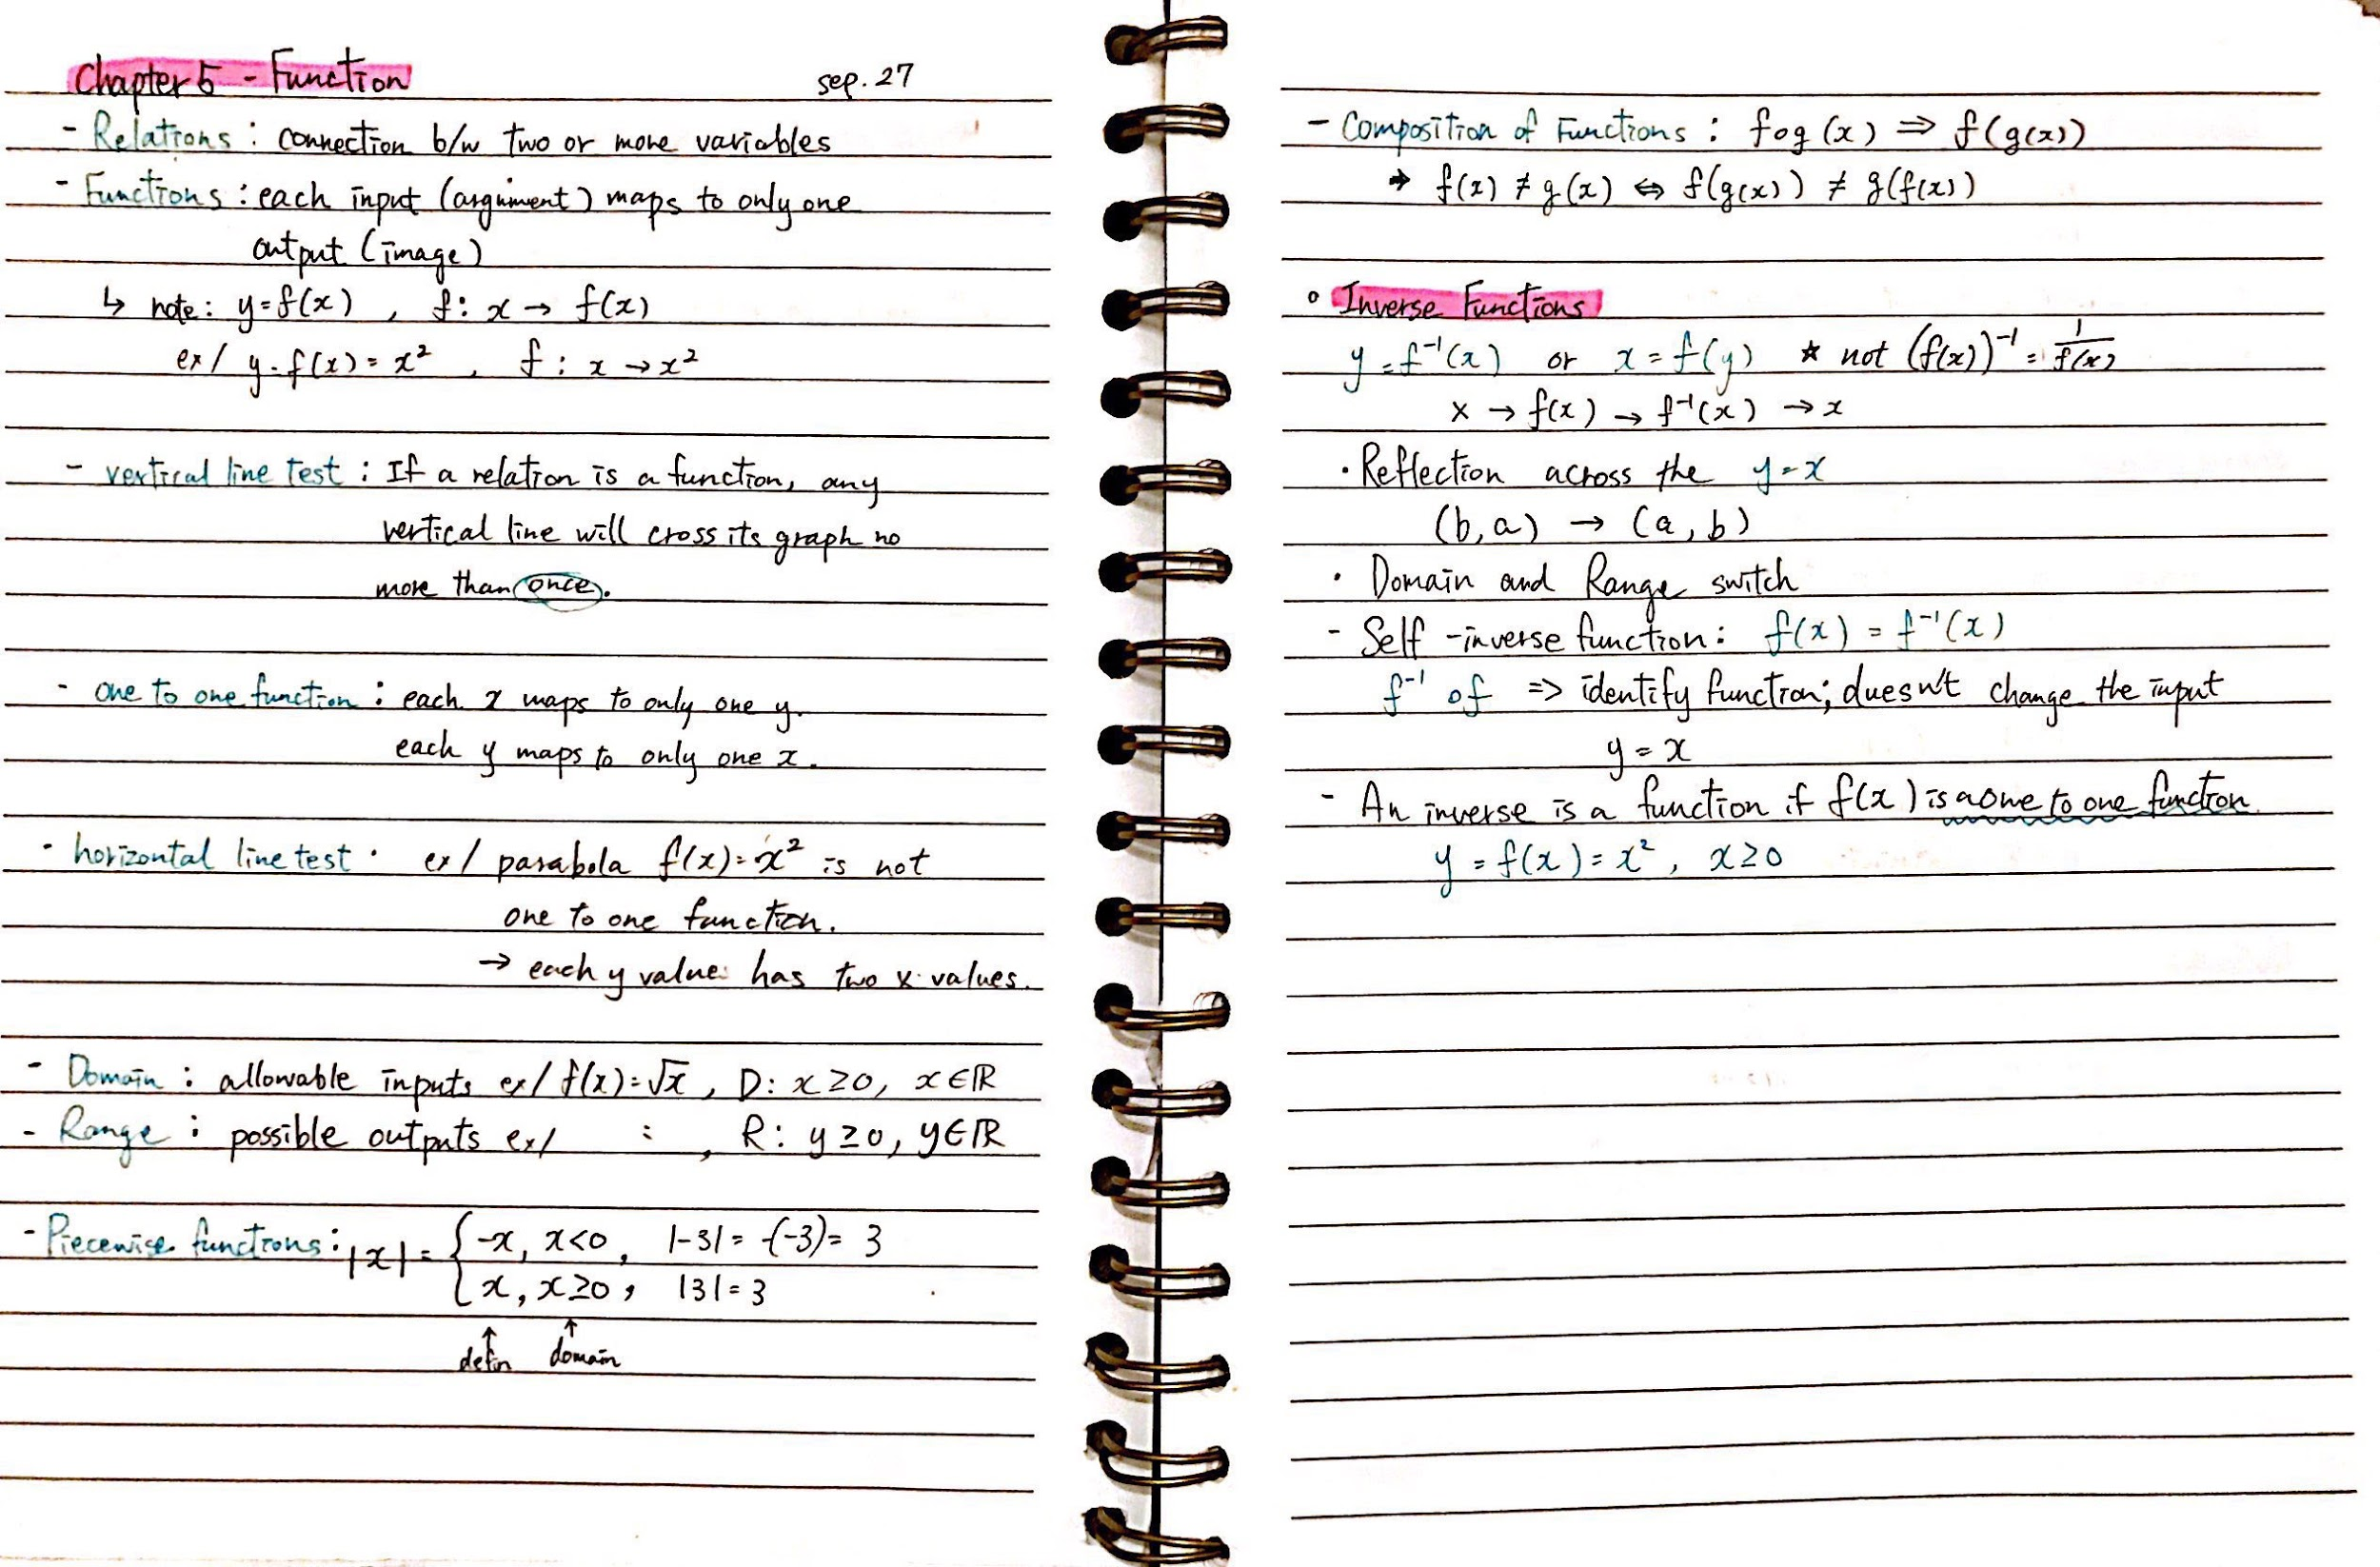 Chapter 5 - Function
sep. 27
- Relations : connection b/w two or more variables
- Functions : each input (argument) maps to only one
output (image)
↳ note: y=f(x) , f: x → f(x)
ex/ y=f(x) = x² , f : x → x²
- vertical line test : If a relation is a function, any
vertical line will cross its graph no
more than once.
- one to one function : each x maps to only one y.
each y maps to only one x.
- horizontal line test · ex/ parabola f(x)=x² is not
one to one function.
→ each y value has two x values.
- Domain : allowable inputs ex/ f(x)=√x , D: x≥0, x∈ℝ
- Range : possible outputs ex/ : , R: y≥0, y∈ℝ
- Piecewise functions : |x| = { -x, x<0, |-3| = -(-3)= 3
x, x≥0, |3|=3
↑ ↑
defin domain
- Composition of Functions : fog (x) ⇒ f(g(x))
→ f(x) ≠ g(x) ⇔ f(g(x)) ≠ g(f(x))
° Inverse Functions
y=f⁻¹(x) or x=f(y) ★ not (f(x))⁻¹ = 1/f(x)
x → f(x) → f⁻¹(x) → x
· Reflection across the y=x
(b,a) → (a,b)
· Domain and Range switch
- Self -inverse function: f(x) = f⁻¹(x)
f⁻¹ of => identify function; duesn't change the input
y = x
- An inverse is a function if f(x) is a one to one function
y = f(x) = x², x≥0